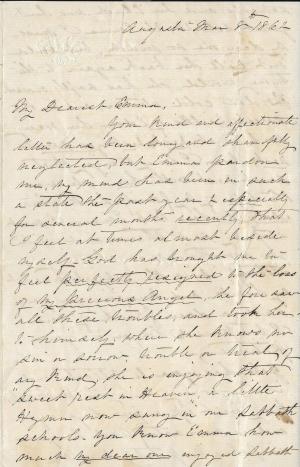 Augusta Mar 8th 1862
My Dearest Emma,
Your kind and affectionate
letter has been long and shamefully
neglected, but Emma pardon
me, my mind has been in such
a state the past year & especially
for several months recently that
I feel at times almost beside
myself - God has brought me to
feel perfectly resigned to the loss
of my precious Angel, he foresaw
all these troubles, and took her
to himself, where she knows no
sin or sorrow trouble or trial of
any kind, she is enjoying that
"Sweet rest in Heaven," a little
Hymn now sung in our Sabbath
schools. You know Emma how
much my dear one enjoyed Sabbath